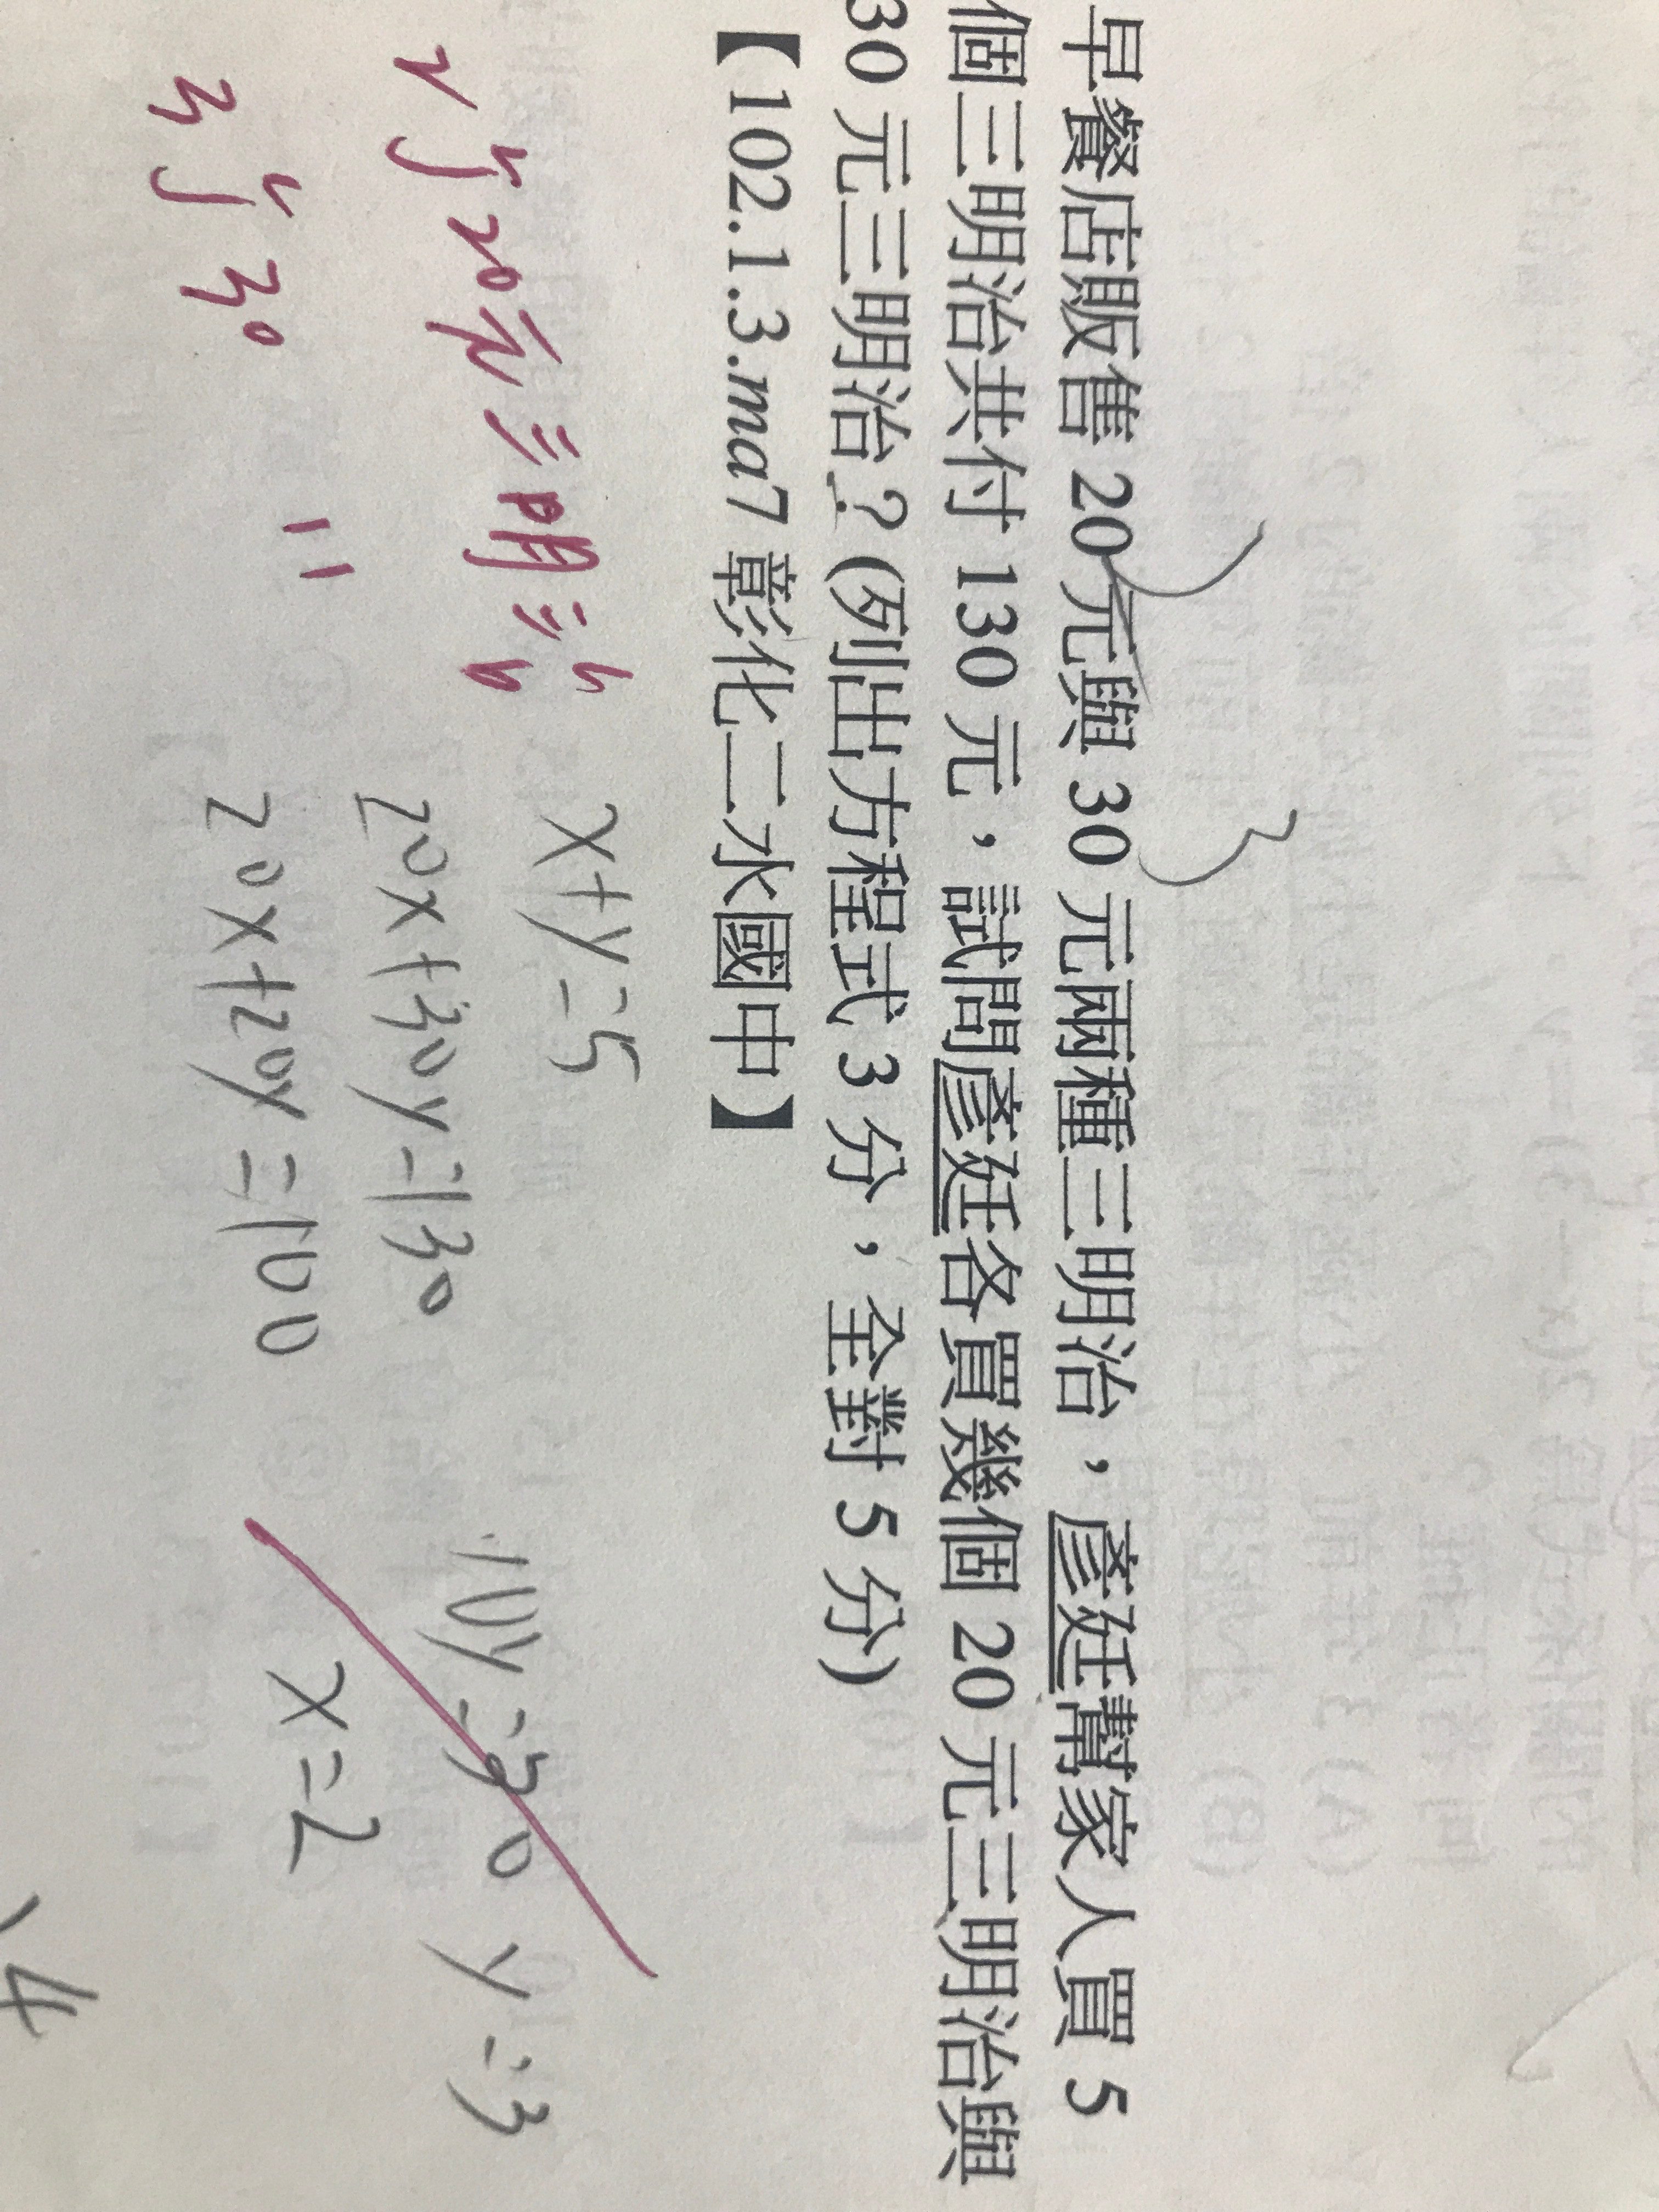 早餐店販售 20 元與 30 元兩種三明治，彥廷幫家人買 5
個三明治共付 130 元，試問彥廷各買幾個 20 元三明治與
30 元三明治？(列出方程式 3 分，全對 5 分)
【102.1.3.ma7 彰化二水國中】
2個20元三明治
3個30 〃
x+y=5
20x+30y=130
20x+20y=100
10y=30 y=3
x=2
4